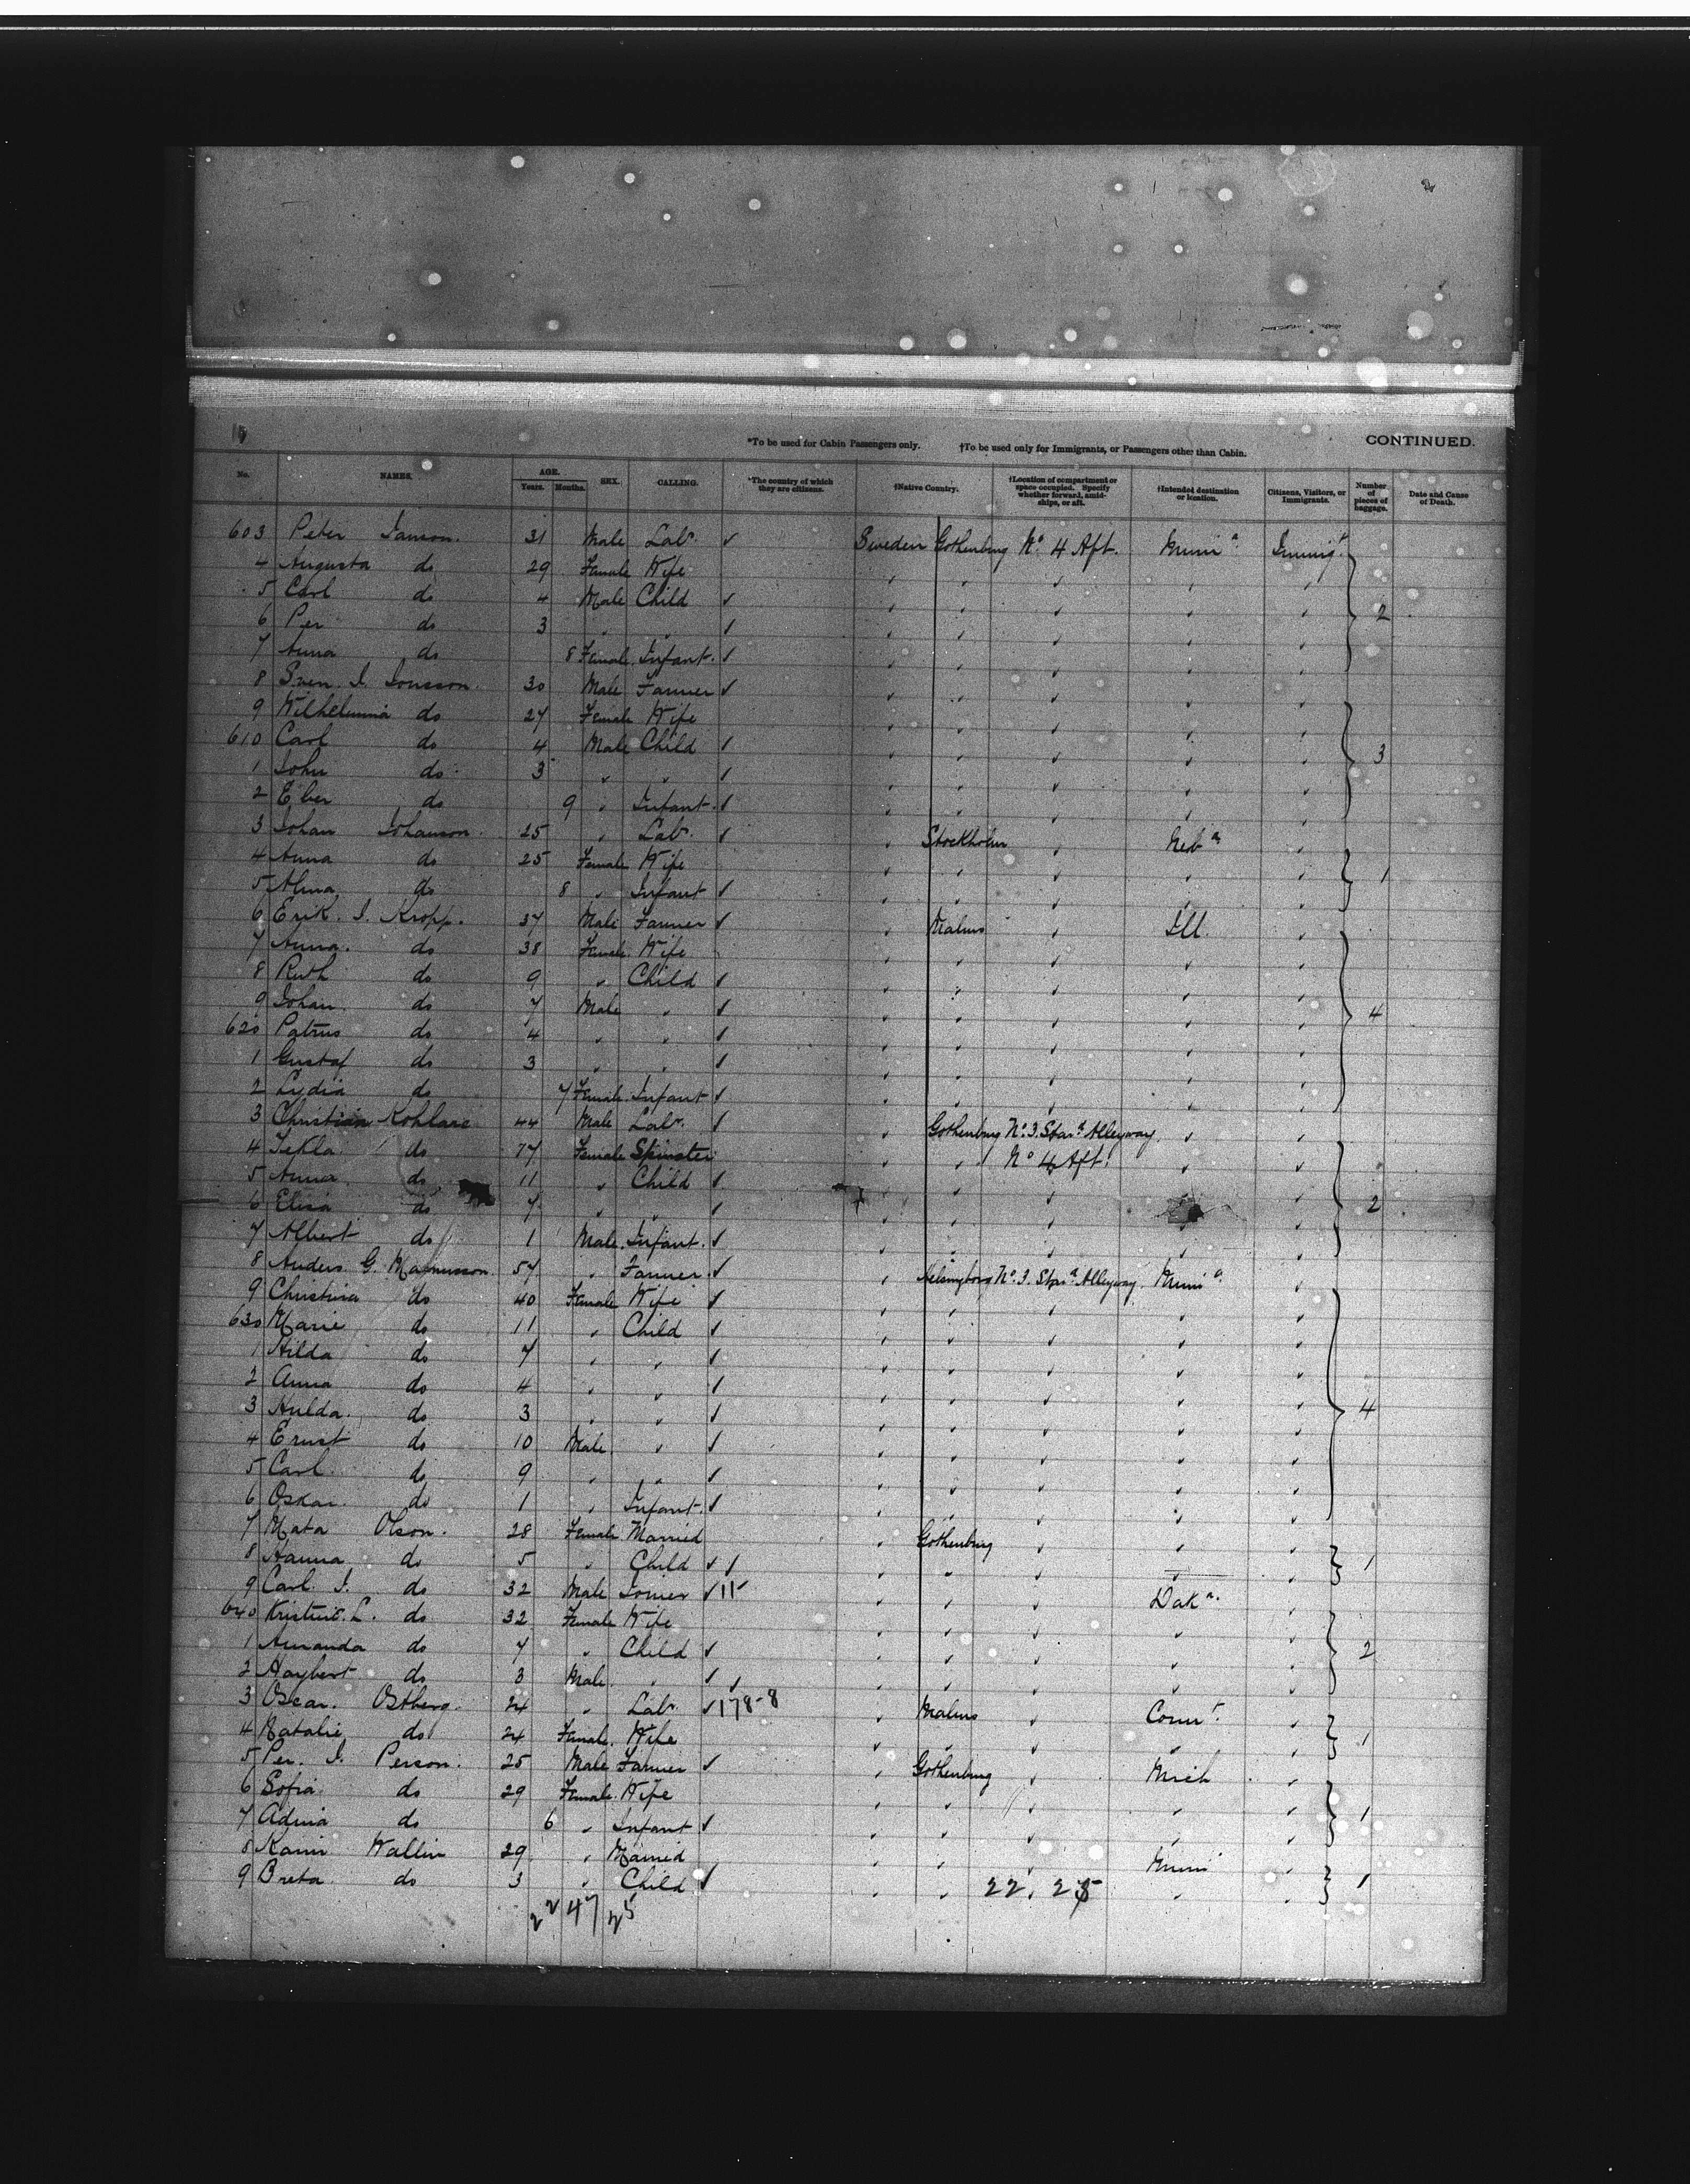 *To be used for Cabin Passengers only. †To be used only for Immigrants, or Passengers other than Cabin. CONTINUED.
No. NAMES. AGE. Years. Months. SEX. CALLING. *The country of which they are citizens. †Native Country. †Location of compartment or space occupied. Specify whether forward, amidships, or aft. †Intended destination or location. Citizens, Visitors, or Immigrants. Number of pieces of baggage. Date and Cause of Death.
603 Peter Janson. 31 Male Labr. ✓ Sweden Gothenburg No. 4 Aft. Minna. Immigt.
4 Augusta do 29 Female Wife
5 Carl do 4 Male Child ✓ 2
6 Per do 3 " " ✓
7 Anna do 8 Female Infant. ✓
8 Sven J. Jonsson. 30 Male Farmer ✓
9 Wilhelmina do 27 Female Wife
610 Carl do 4 Male Child ✓ 3
1 John do 3 " " ✓
2 Eber do 9 " Infant. ✓
3 Johan Johanson. 25 " Labr. ✓ Stockholm Neba
4 Anna do 25 Female Wife 1
5 Alma do 8 " Infant ✓
6 Erik. J. Kropp. 37 Male Farmer ✓ Malmo Ill.
7 Anna. do 38 Female Wife
8 Ruth do 9 " Child ✓
9 Johan do 7 Male " ✓ 4
620 Petrus do 4 " " ✓
1 Gustaf do 3 " " ✓
2 Lydia do 7 Female Infant ✓
3 Christian 44 Male Labr. ✓ Gothenburg No. 3. Starbd Alleyway
4 Tekla do 77 Female Spinster No 4 Aft.
5 Anna do 11 " Child ✓
6 Elisa do 7 " " ✓ 2
7 Albert do 1 Male. Infant. ✓
8 Anders G. Magnusson. 57 " Farmer. ✓ Helsingborg No. 3. Starbd Alleyway. Minna.
9 Christina do 40 Female Wife ✓
630 Marie do 11 " Child ✓
1 Hilda do 7 " " ✓
2 Anna do 4 " " ✓
3 Hulda. do 3 " " ✓ 4
4 Ernst do 10 Male " ✓
5 Carl do 9 " " ✓
6 Oskar. do 1 " Infant. ✓
7 Mata Olson. 28 Female Married Gothenburg
8 Hanna do 5 " Child ✓ 1
9 Carl. J. do 32 Male Joiner ✓ Daka.
640 L. do 32 Female Wife
1 Amanda do 7 " Child ✓ 2
2 do 3 Male " ✓
3 Oscar. Ostberg. 24 " Labr ✓ 178-8 Malmo Connt.
4 Natalie do 24 Female. Wife 1
5 Per. J. Person. 25 Male Farmer ✓ Gothenburg Mich
6 Sofia. do 29 Female. Wife
7 do 6 " Infant ✓ 1
8 Karin Wallin 29 " Married Minna
9 Breta do 3 " Child ✓ 1
22. 25
22 47 25